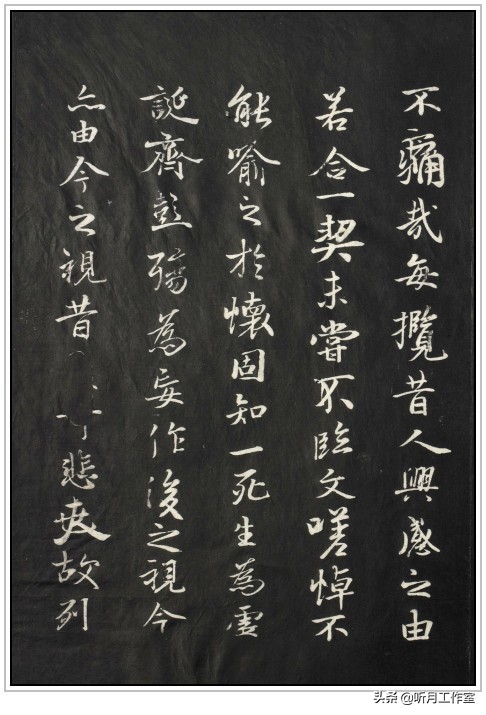 不痛哉每攬昔人興感之由
若合一契未嘗不臨文嗟悼不
能喻之於懷固知一死生為虛
誕齊彭殤為妄作後之視今
亦由今之視昔悲夫故列
头条 @听月工作室